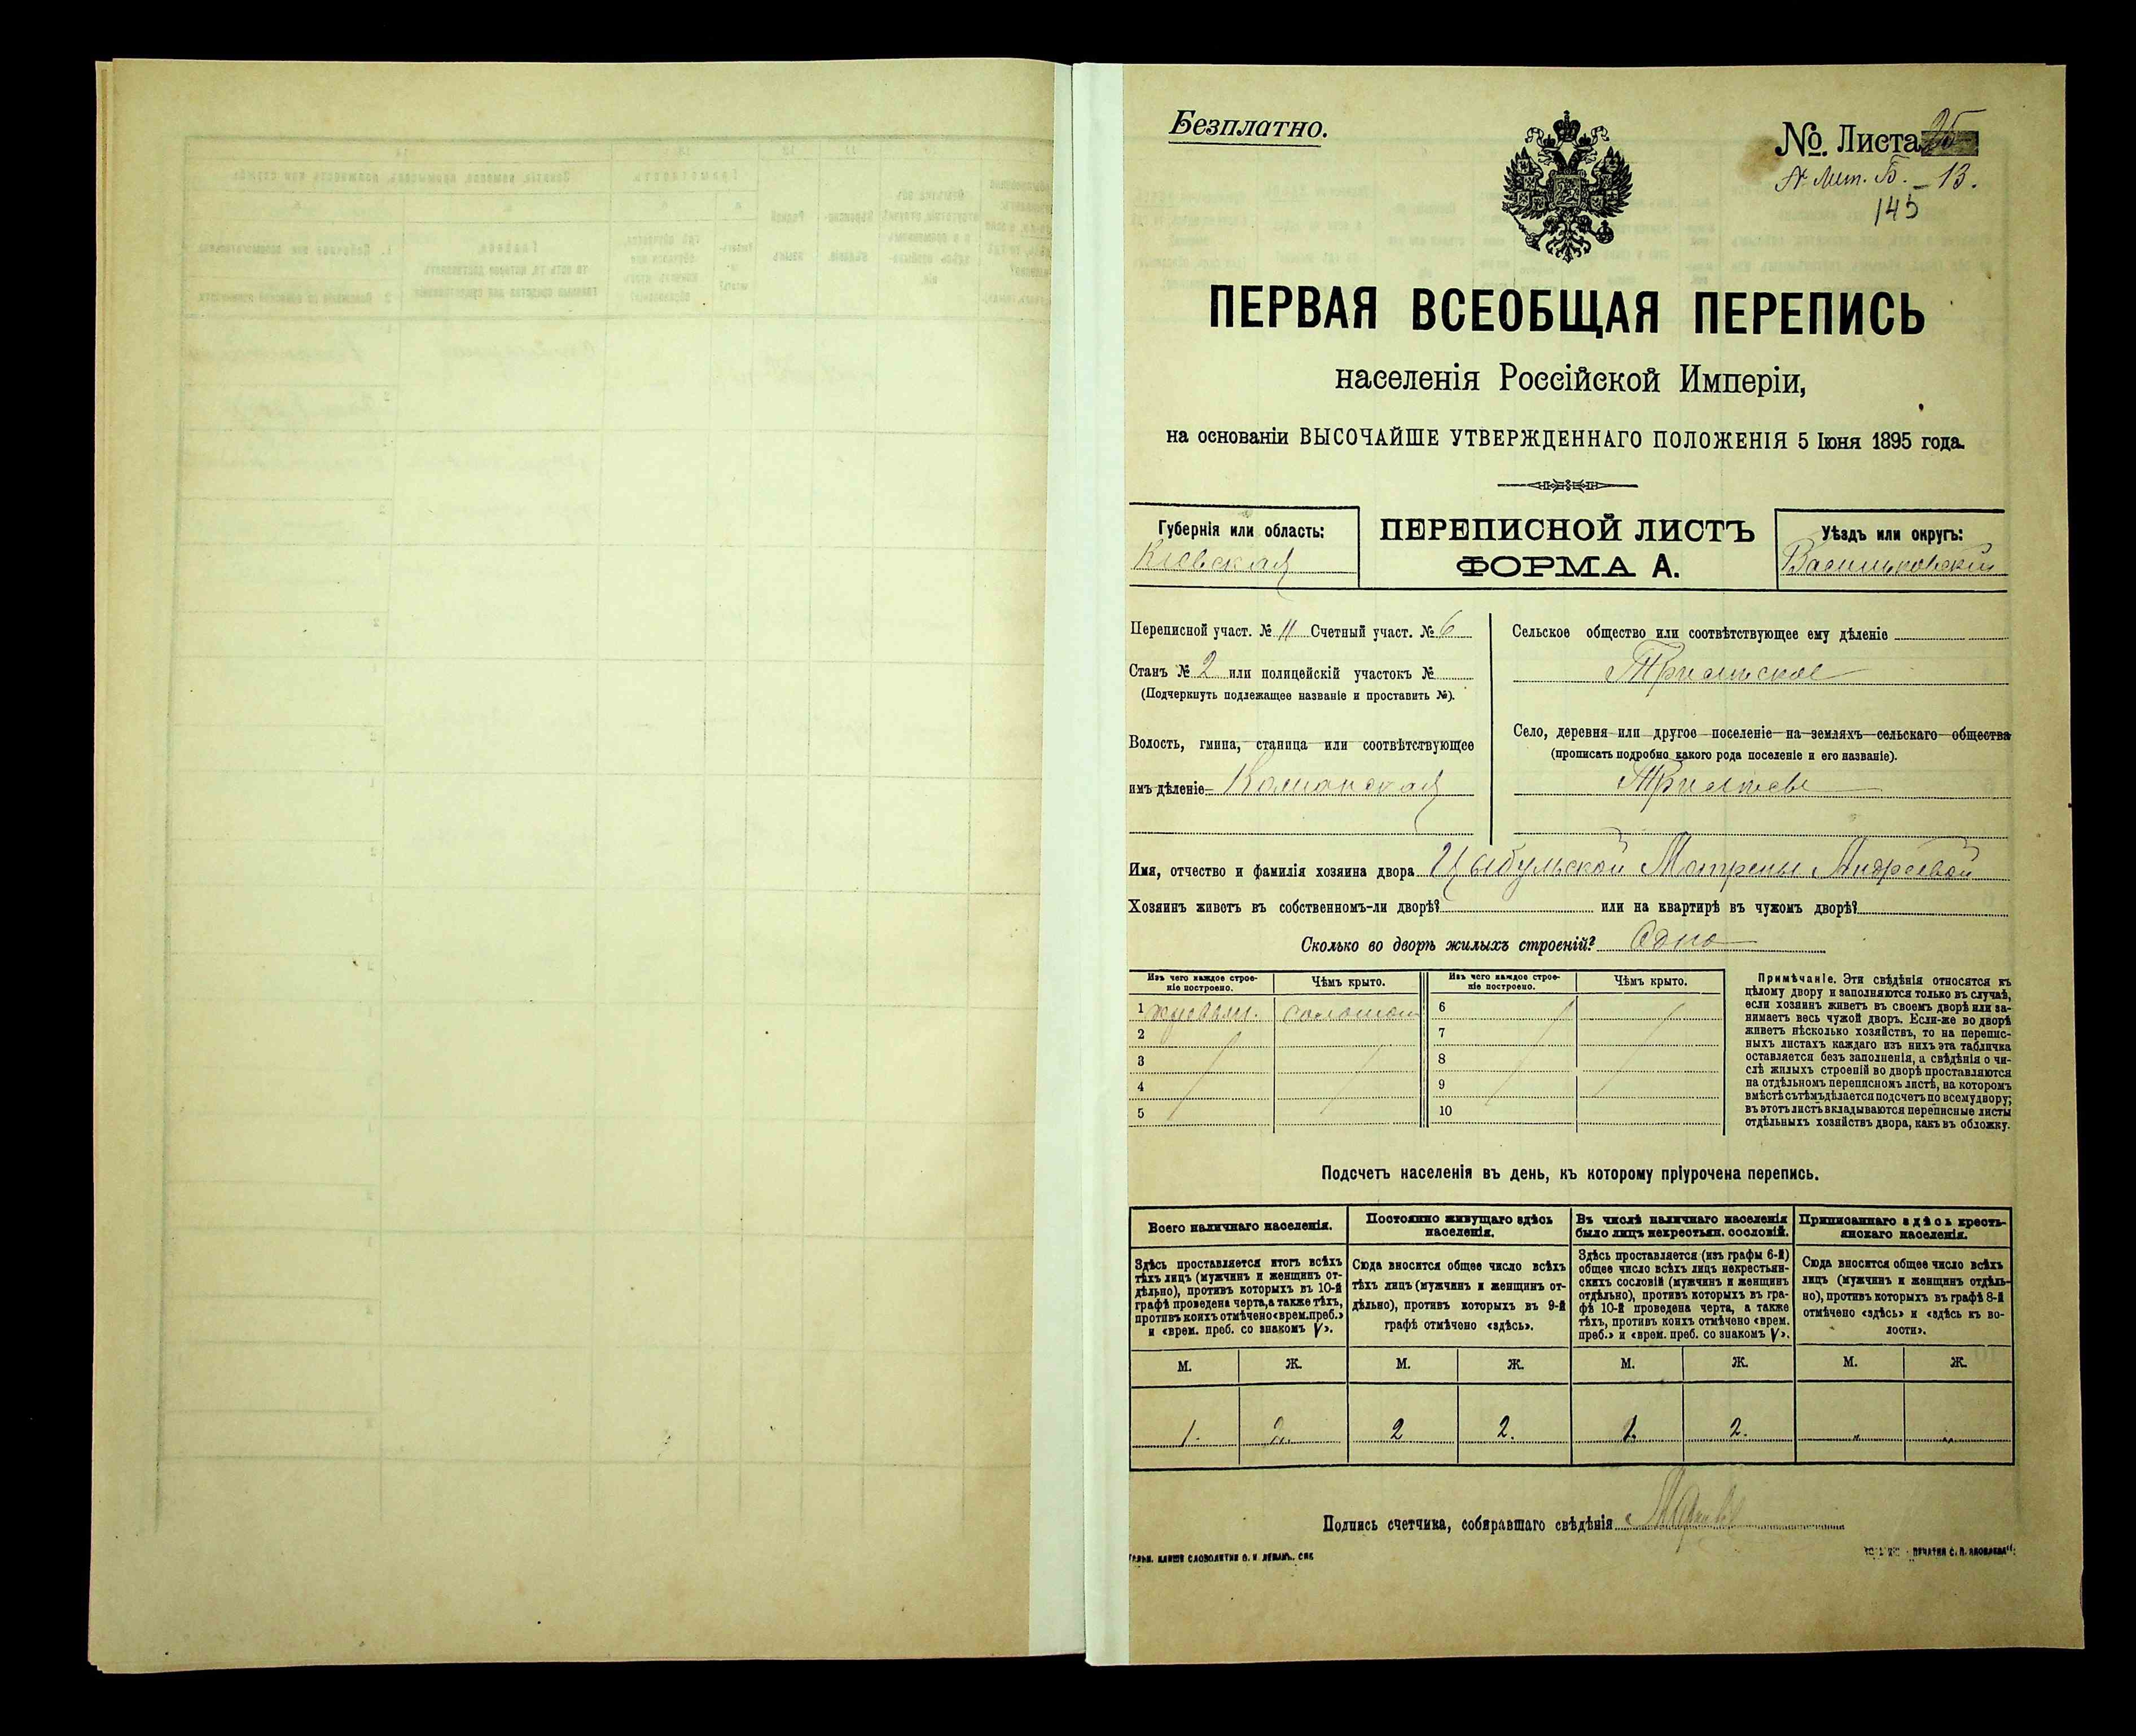 Безплатно.
№. Листа 25
№ Лит. Б. – 13.
145
ПЕРВАЯ ВСЕОБЩАЯ ПЕРЕПИСЬ
населенія Россійской Имперіи,
на основаніи ВЫСОЧАЙШЕ УТВЕРЖДЕННАГО ПОЛОЖЕНІЯ 5 Іюня 1895 года.
Губернія или область:
Кіевская
ПЕРЕПИСНОЙ ЛИСТЪ
ФОРМА А.
Уѣздъ или округъ:
Васильковскій
Переписной участ. № 11 Счетный участ. № 6
Станъ № 2 или полицейскій участокъ №
(Подчеркнуть подлежащее названіе и проставить №).
Волость, гмина, станица или соотвѣтствующее
имъ дѣленіе
Сельское общество или соотвѣтствующее ему дѣленіе
Трилѣсское
Село, деревня или другое поселеніе на земляхъ сельскаго общества
(прописать подробно какого рода поселеніе и его названіе).
Трилѣсы
Имя, отчество и фамилія хозяина двора Цыбульской Матрены Андреевой
Хозяинъ живетъ въ собственномъ-ли дворѣ? или на квартирѣ въ чужомъ дворѣ?
Сколько во дворѣ жилыхъ строеній? Одно
Изъ чего каждое строе-
ніе построено.
Чѣмъ крыто.
Изъ чего каждое строе-
ніе построено.
Чѣмъ крыто.
1 соломой 6
2 7
3 8
4 9
5 10
Примѣчаніе. Эти свѣдѣнія относятся къ
цѣлому двору и заполняются только въ случаѣ,
если хозяинъ живетъ въ своемъ дворѣ или за-
нимаетъ весь чужой дворъ. Если-же во дворѣ
живетъ нѣсколько хозяйствъ, то на перепис-
ныхъ листахъ каждаго изъ нихъ эта табличка
оставляется безъ заполненія, а свѣдѣнія о чи-
слѣ жилыхъ строеній во дворѣ проставляются
на отдѣльномъ переписномъ листѣ, на которомъ
вмѣстѣ съ тѣмъ дѣлается подсчетъ по всему двору;
въ этотъ листъ вкладываются переписные листы
отдѣльныхъ хозяйствъ двора, какъ въ обложку.
Подсчетъ населенія въ день, къ которому пріурочена перепись.
Всего наличнаго населенія.
Здѣсь проставляется итогъ всѣхъ
тѣхъ лицъ (мужчинъ и женщинъ от-
дѣльно), противъ которыхъ въ 10-й
графѣ проведена черта, а также тѣхъ,
противъ коихъ отмѣчено «врем. преб.»
и «врем. преб. со знакомъ V».
Постоянно живущаго здѣсь
населенія.
Сюда вносится общее число всѣхъ
тѣхъ лицъ (мужчинъ и женщинъ от-
дѣльно), противъ которыхъ въ 9-й
графѣ отмѣчено «здѣсь».
Въ числѣ наличнаго населенія
было лицъ некрестьян. сословій.
Здѣсь проставляется (изъ графы 6-й)
общее число всѣхъ лицъ некрестьян-
скихъ сословій (мужчинъ и женщинъ
отдѣльно), противъ которыхъ въ гра-
фѣ 10-й проведена черта, а также
тѣхъ, противъ коихъ отмѣчено «врем.
преб.» и «врем. преб. со знакомъ V».
Приписаннаго здѣсь кресть-
янскаго населенія.
Сюда вносится общее число всѣхъ
лицъ (мужчинъ и женщинъ отдѣль-
но), противъ которыхъ въ графѣ 8-й
отмѣчено «здѣсь» и «здѣсь къ во-
лости».
М. Ж. М. Ж. М. Ж. М. Ж.
1. 2. 2 2. 1. 2. " "
Подпись счетчика, собиравшаго свѣдѣнія